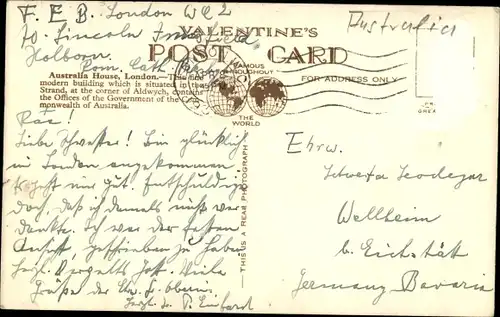 F. E. B. London WC2
Lincoln
Holborn.
Rom. Cath.
VALENTINE'S
POST CARD
FAMOUS THROUGHOUT
THE WORLD
FOR ADDRESS ONLY
Australia House, London.—This fine
modern building which is situated in the
Strand, at the corner of Aldwych, contains
the Offices of the Government of the Com-
monwealth of Australia.
THIS IS A REAL PHOTOGRAPH
Australia
Liebe Schwester! Bin glücklich
in London angekommen
geht mir gut. Entschuldige
doch, daß ich damals nicht
dankte. Ich war der festen
Ansicht, geschrieben zu haben
Vergelts Gott. Viele
Grüße
Ehrw.
Schwester
Wellheim
b. Eichstätt
Germany Bavaria